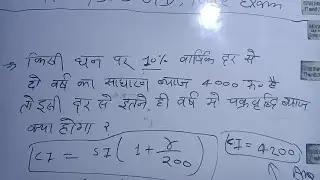 Exam
→ किसी धन पर 10% वार्षिक दर से
दो वर्ष का साधारण ब्याज 4000 रु॰ है
तो इसी दर से इतने ही वर्ष में चक्रवृद्धि ब्याज
क्या होगा ?
CI = SI (1 + r/200)
CI = 4200
Ans